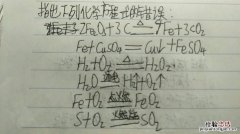 指出下列化学方程式的错误:
2Fe₂O₃+3C △ 2Fe+3CO₂
Fe+CuSO₄=Cu↓+FeSO₄
H₂+O₂ H₂O₂
H₂O 通电 H↑+O₂↑
Fe+O₂ 点燃 FeO₂
S+O₂ 点燃 SO₂